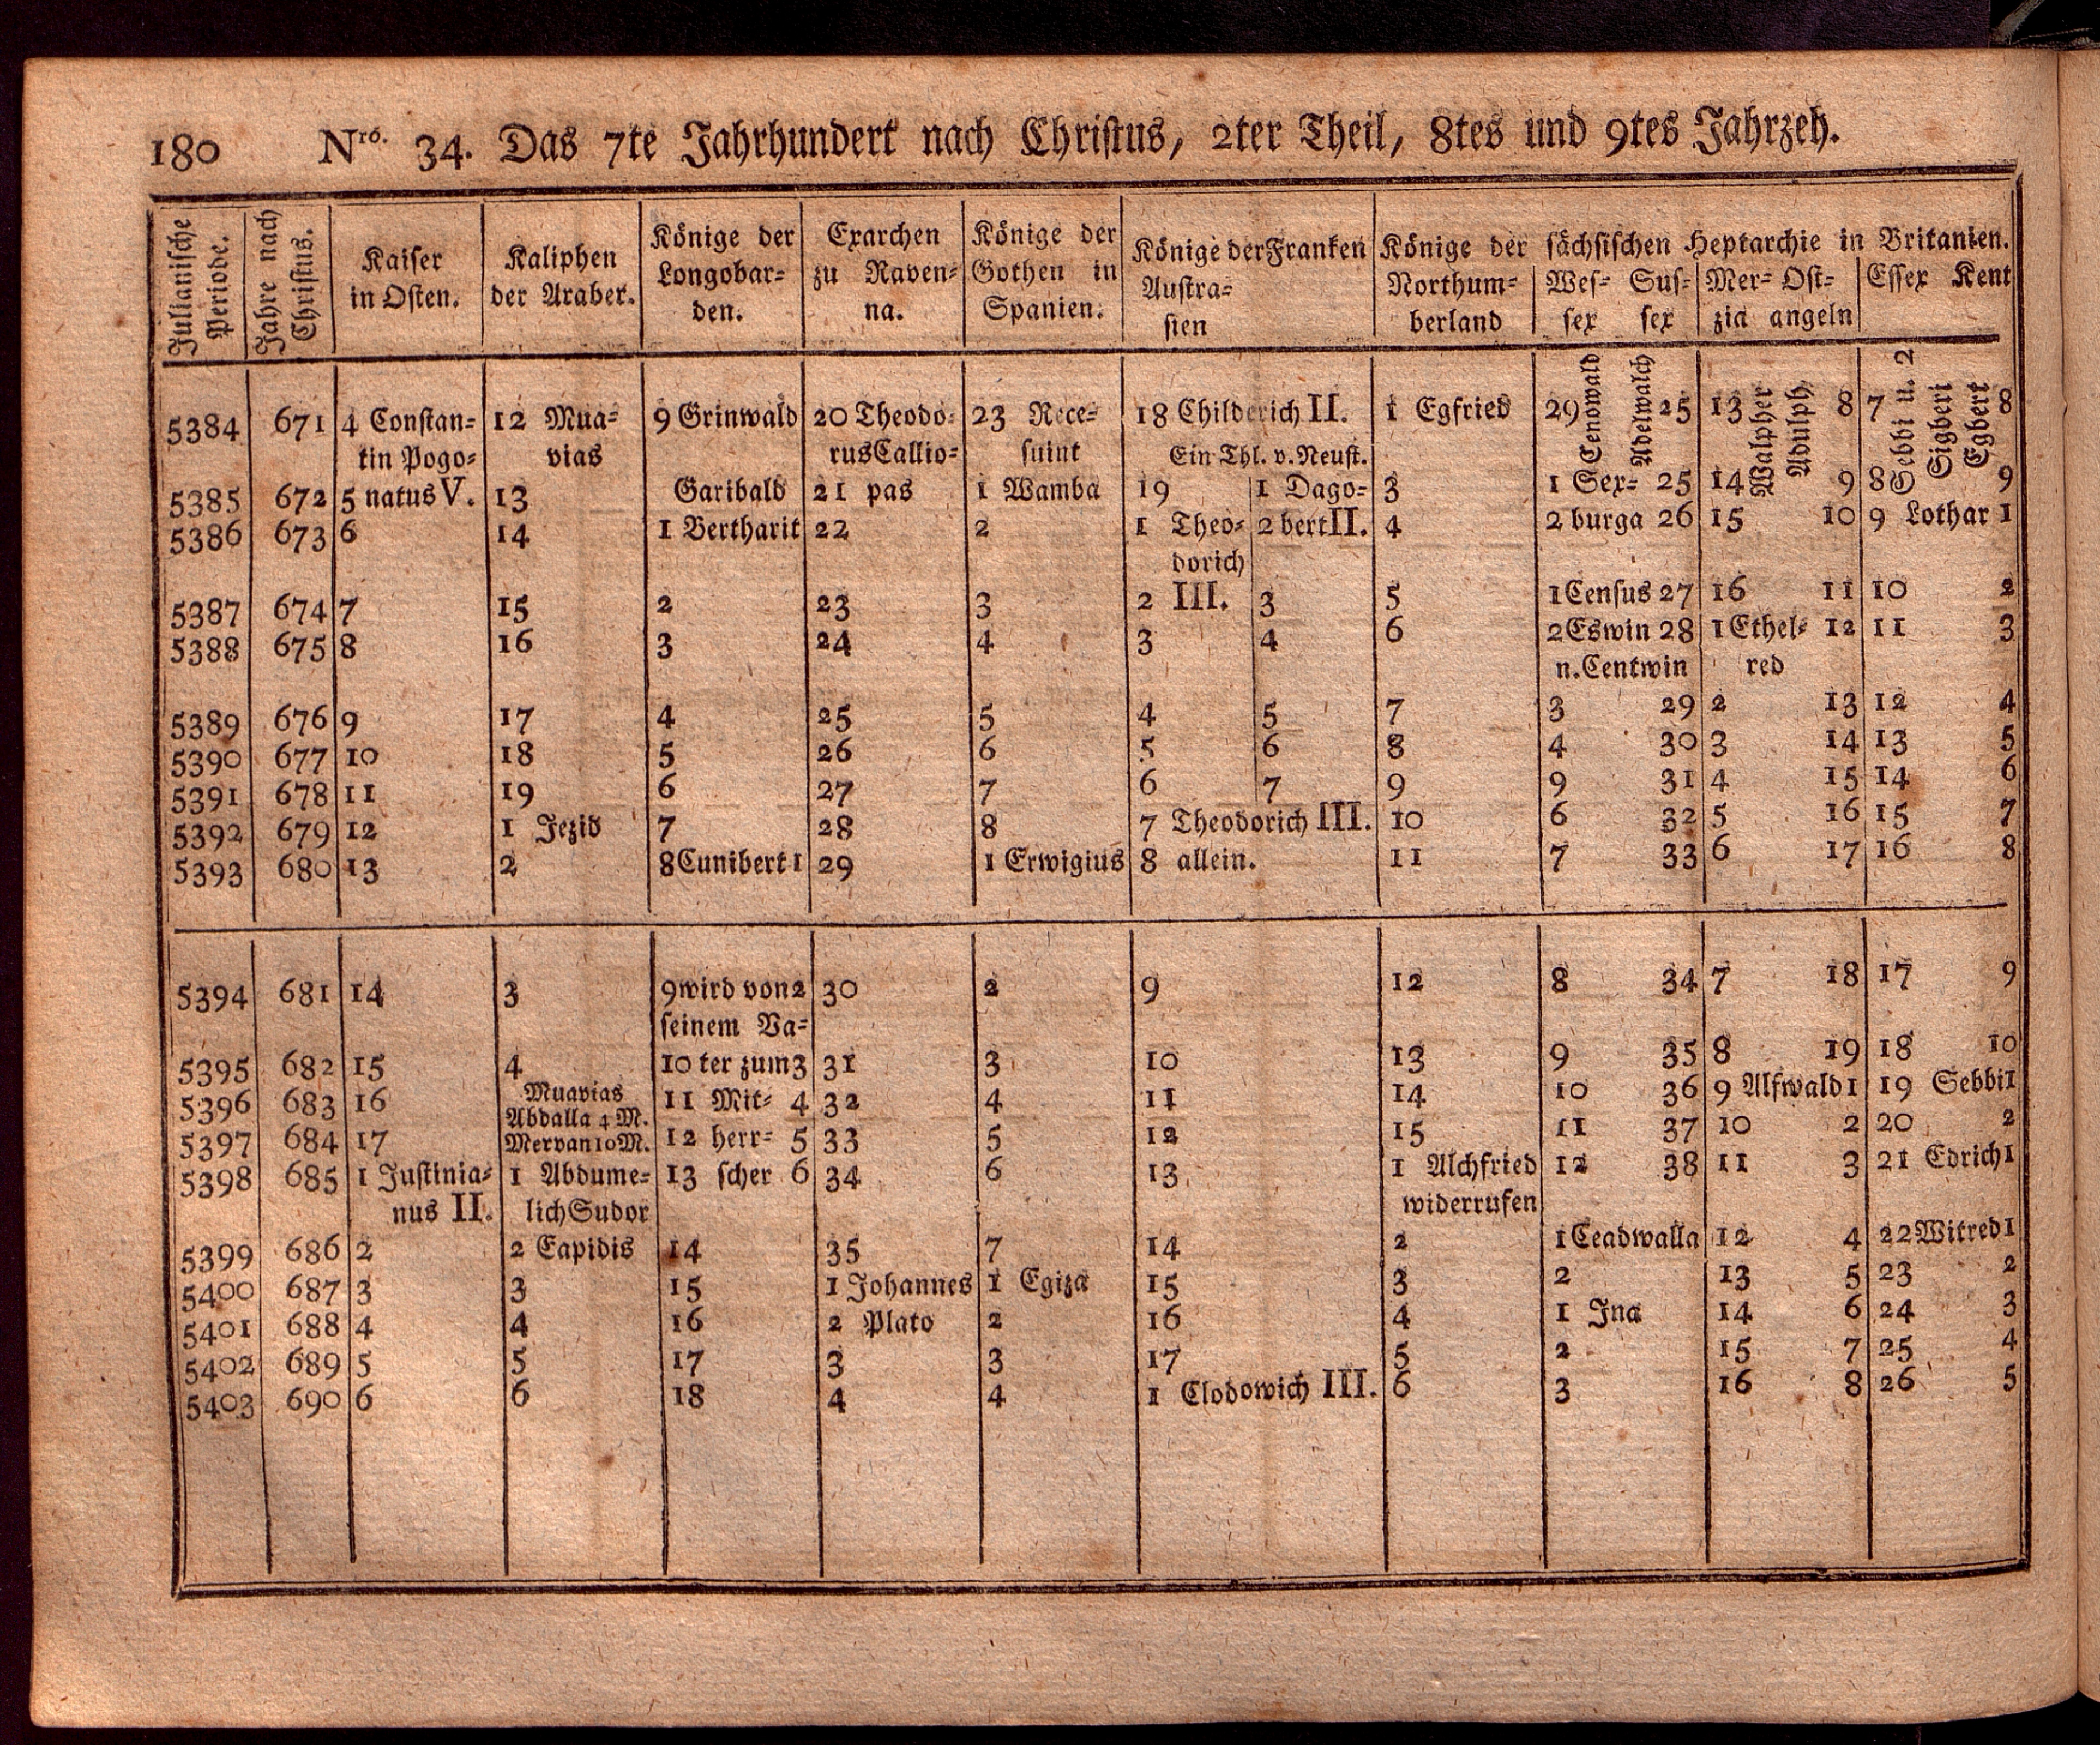 180 Nro. 34. Das 7te Jahrhundert nach Christus, 2ter Theil, 8tes und 9tes Jahrzeh.
Julianische Periode. | Jahre nach Christus. | Kaiser in Osten. | Kaliphen der Araber. | Könige der Longobar= den. | Exarchen zu Raven= na. | Könige der Gothen in Spanien. | Könige der Franken Austra= sien | Könige der sächsischen Heptarchie in Britanien.
Northum= berland | Wes= sex Sus= sex | Mer= zia Ost= angeln | Essex Kent
5384 671 4 Constan= 12 Mua= 9 Grinwald 20 Theodo= 23 Rece= 18 Childerich II. 1 Egfried 29 Cenowald Adelwalch 25 13 Walpher Adulph 8 7 Sebbi u. 2 Sigberi Egbert 8
tin Pogo= vias rus Callio= suint Ein Thl. v. Neust.
5385 672 5 natus V. 13 Garibald 21 pas 1 Wamba 19 1 Dago= 3 1 Sex= 25 14 9 8 9
5386 673 6 14 1 Bertharit 22 2 1 Theo= 2 bert II. 4 2 burga 26 15 10 9 Lothar 1
dorich
5387 674 7 15 2 23 3 2 III. 3 5 1 Census 27 16 11 10 2
5388 675 8 16 3 24 4 3 4 6 2 Eswin 28 1 Ethel= 12 11 3
n. Centwin red
5389 676 9 17 4 25 5 4 5 7 3 29 2 13 12 4
5390 677 10 18 5 26 6 5 6 8 4 30 3 14 13 5
5391 678 11 19 6 27 7 6 7 9 9 31 4 15 14 6
5392 679 12 1 Jezid 7 28 8 7 Theodorich III. 10 6 32 5 16 15 7
5393 680 13 2 8 Cunibert 1 29 1 Erwigius 8 allein. 11 7 33 6 17 16 8
5394 681 14 3 9 wird von 2 30 2 9 12 8 34 7 18 17 9
seinem Va=
5395 682 15 4 10 ter zum 3 31 3 10 13 9 35 8 19 18 10
5396 683 16 Muavias Abdalla 4 M. 11 Mit= 4 32 4 11 14 10 36 9 Alfwald 1 19 Sebbi 1
5397 684 17 Mervan 10 M. 12 herr= 5 33 5 12 15 11 37 10 2 20 2
5398 685 1 Justinia= 1 Abdume= 13 scher 6 34 6 13 1 Alchfried 12 38 11 3 21 Edrich 1
nus II. lich Sudor widerrufen
5399 686 2 2 Eapidis 14 35 7 14 2 1 Ceadwalla 12 4 22 Witred 1
5400 687 3 3 15 1 Johannes 1 Egiza 15 3 2 13 5 23 2
5401 688 4 4 16 2 Plato 2 16 4 1 Ina 14 6 24 3
5402 689 5 5 17 3 3 17 5 2 15 7 25 4
5403 690 6 6 18 4 4 1 Clodowich III. 6 3 16 8 26 5